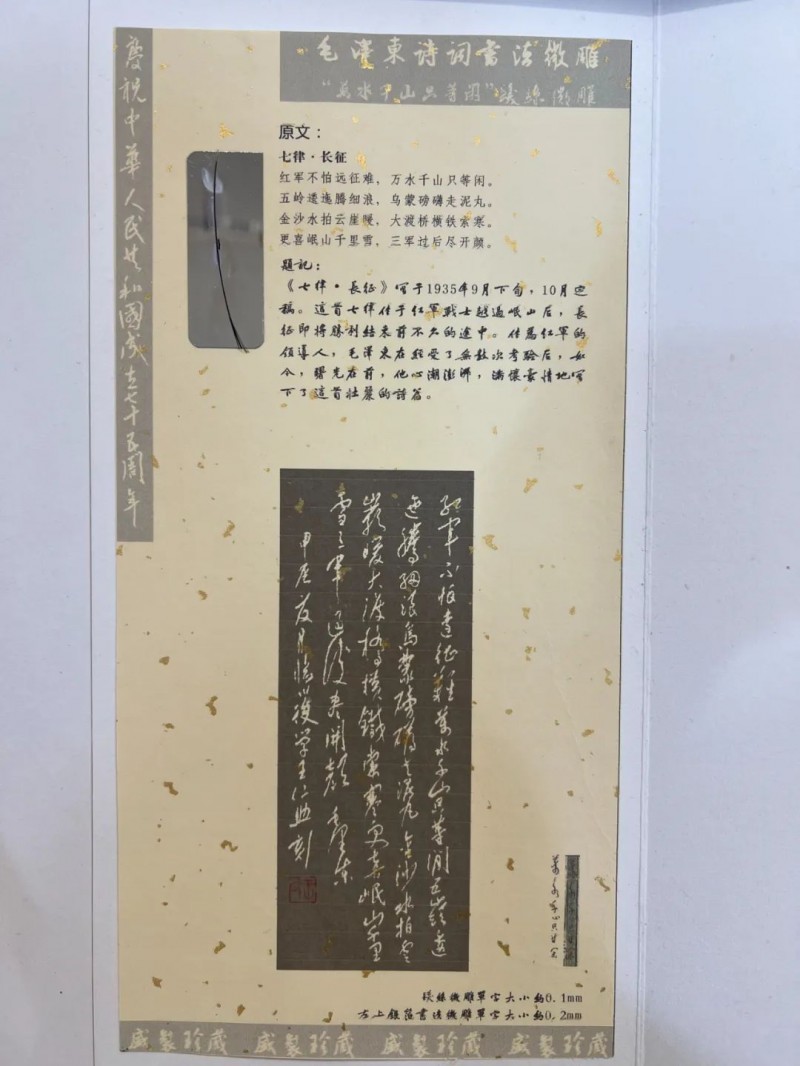 慶祝中華人民共和國成立七十五周年
毛澤東詩詞書法微雕
“萬水千山只等閑”髮絲微雕
原文：
七律·长征
红军不怕远征难，万水千山只等闲。
五岭逶迤腾细浪，乌蒙磅礴走泥丸。
金沙水拍云崖暖，大渡桥横铁索寒。
更喜岷山千里雪，三军过后尽开颜。
题記：
《七律·長征》寫于1935年9月下旬，10月定
稿。這首七律作于紅軍戰士越過岷山后，長
征即將勝利結束前不久的途中。作爲紅軍的
領導人，毛澤東在經受了無數次考驗后，如
今，曙光在前，他心潮澎湃，滿懷豪情地寫
下了這首壯麗的詩篇。
紅軍不怕遠征難萬水千山只等閑五嶺逶
迤騰細浪烏蒙磅礴走泥丸金沙水拍雲
崖暖大渡橋橫鐵索寒更喜岷山千里
雪三軍過後盡開顏 毛澤東
甲辰 月臨 學王仁 刻
萬水千山只等閑
髮絲微雕單字大小約0.1mm
左上 書法微雕單字大小約0.2mm
盛製珍藏 盛製珍藏 盛製珍藏 盛製珍藏